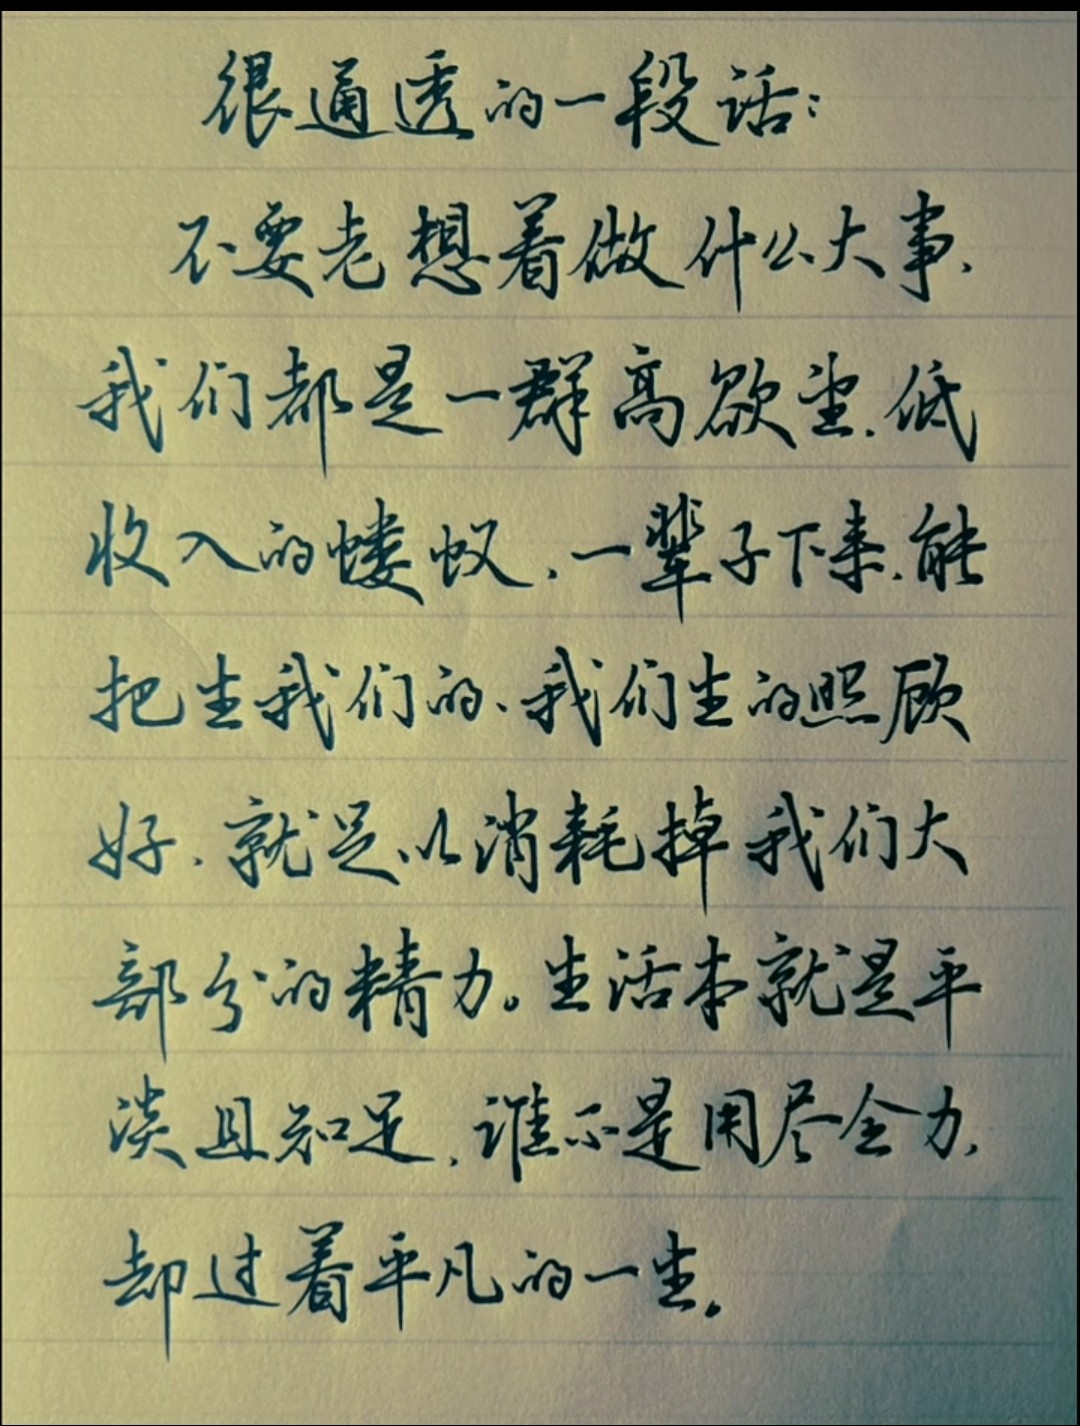 很通透的一段话:
不要老想着做什么大事,
我们都是一群高欲望.低
收入的蝼蚁,一辈子下来,能
把生我们的、我们生的照顾
好,就足以消耗掉我们大
部分的精力。生活本就是平
淡且知足,谁不是用尽全力,
却过着平凡的一生。